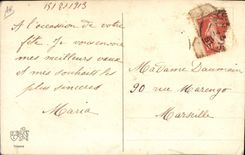 15/8/1913
A l'occasion de votre
fête. Je vous envoie
mes meilleurs vœux
et mes souhaits les
plus sincères
Maria
Madame Daumain
90 rue Marengo
Marseille